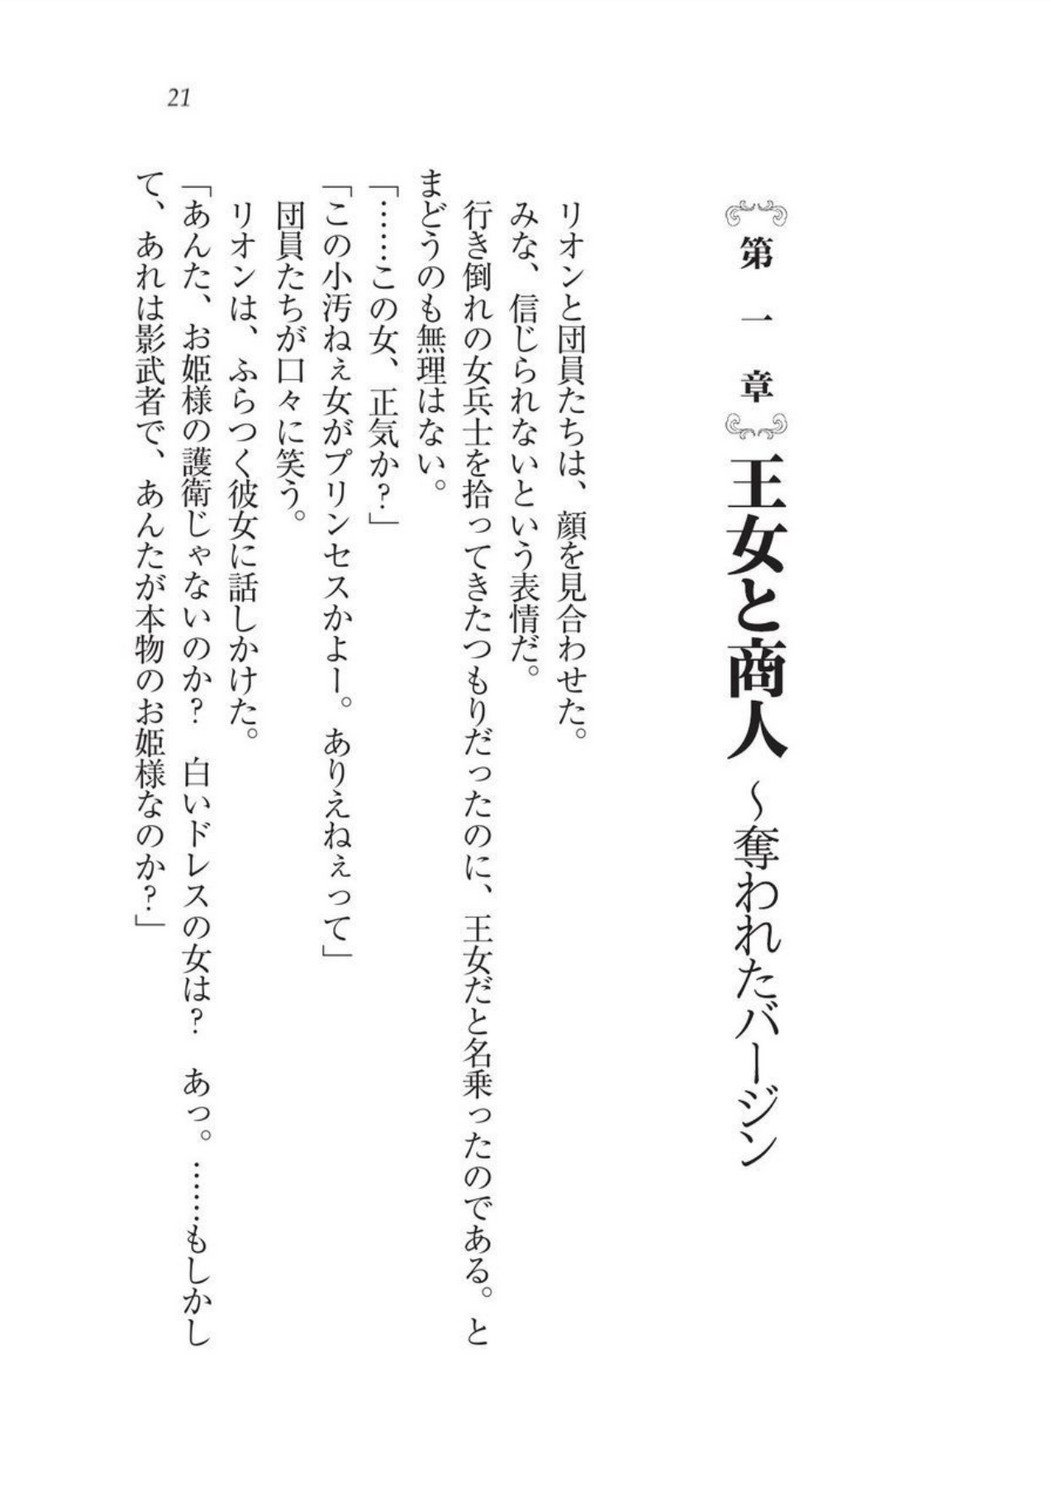 21
第一章 王女と商人 ～奪われたバージン
リオンと団員たちは、顔を見合わせた。
みな、信じられないという表情だ。
行き倒れの女兵士を拾ってきたつもりだったのに、王女だと名乗ったのである。と
まどうのも無理はない。
「……この女、正気か？」
「この小汚ねぇ女がプリンセスかよー。ありえねぇって」
団員たちが口々に笑う。
リオンは、ふらつく彼女に話しかけた。
「あんた、お姫様の護衛じゃないのか？　白いドレスの女は？　あっ。……もしかし
て、あれは影武者で、あんたが本物のお姫様なのか？」